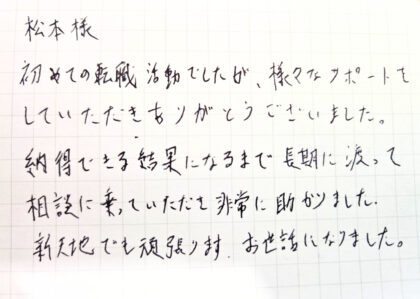 松本様
初めての転職活動でしたが、様々なサポートを
していただきありがとうございました。
納得できる結果になるまで長期に渡って
相談に乗っていただき非常に助かりました.
新天地でも頑張ります. お世話になりました。